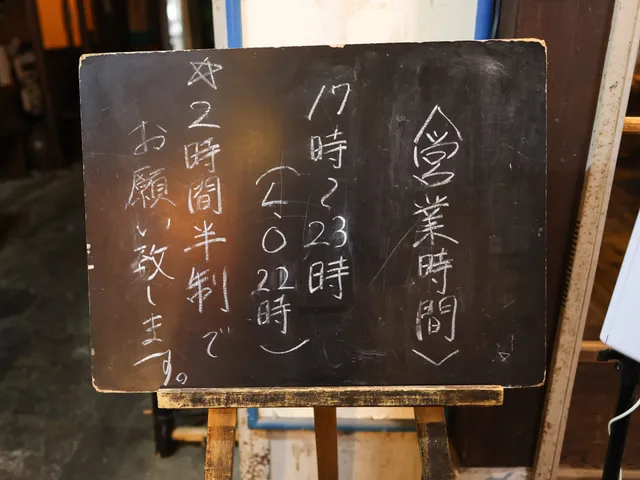 〈営業時間〉
17時~23時
(L.O 22時)
☆2時間半制で
お願い致します。